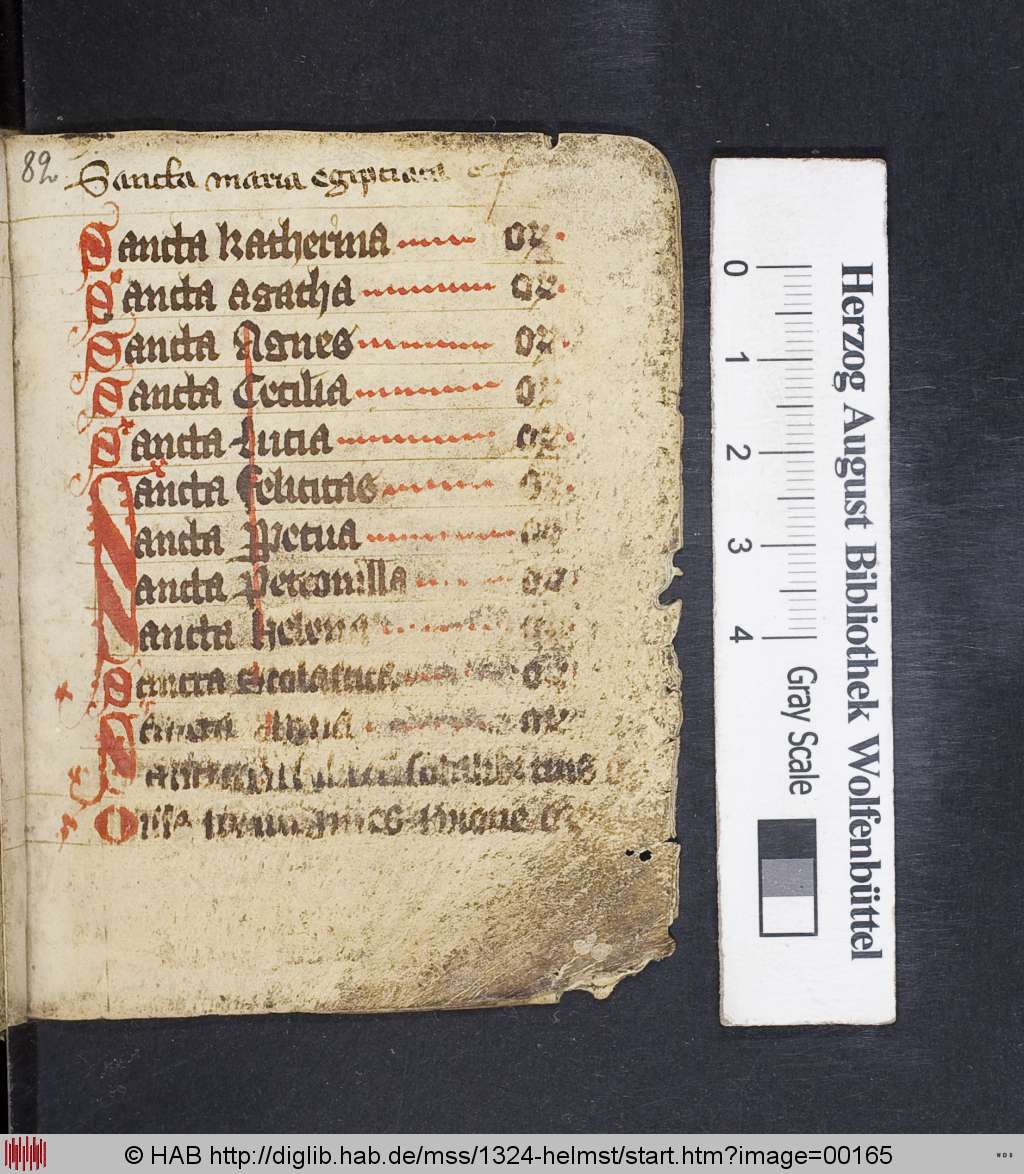 82
Sancta maria egiptiaca
Sancta katherina or
Sancta agatha or
Sancta Agnes or
Sancta Cecilia or
Sancta Lucia or
Sancta felicitas or
Sancta Ppetua or
Sancta Petronilla or
Sancta helena or
Sancta Scolastica or
Sancta or
Herzog August Bibliothek Wolfenbüttel
0 1 2 3 4
Gray Scale
© HAB http://diglib.hab.de/mss/1324-helmst/start.htm?image=00165
WDB